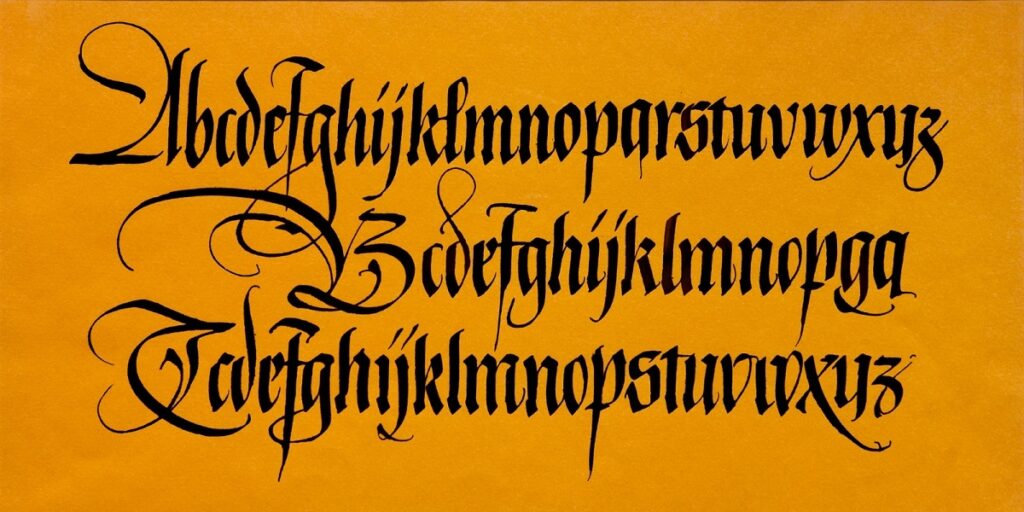 Abcdefghijklmnopqrstuvwxyz
Bcdefghijklmnopgq
Tcdefghijklmnopstuvwxyz